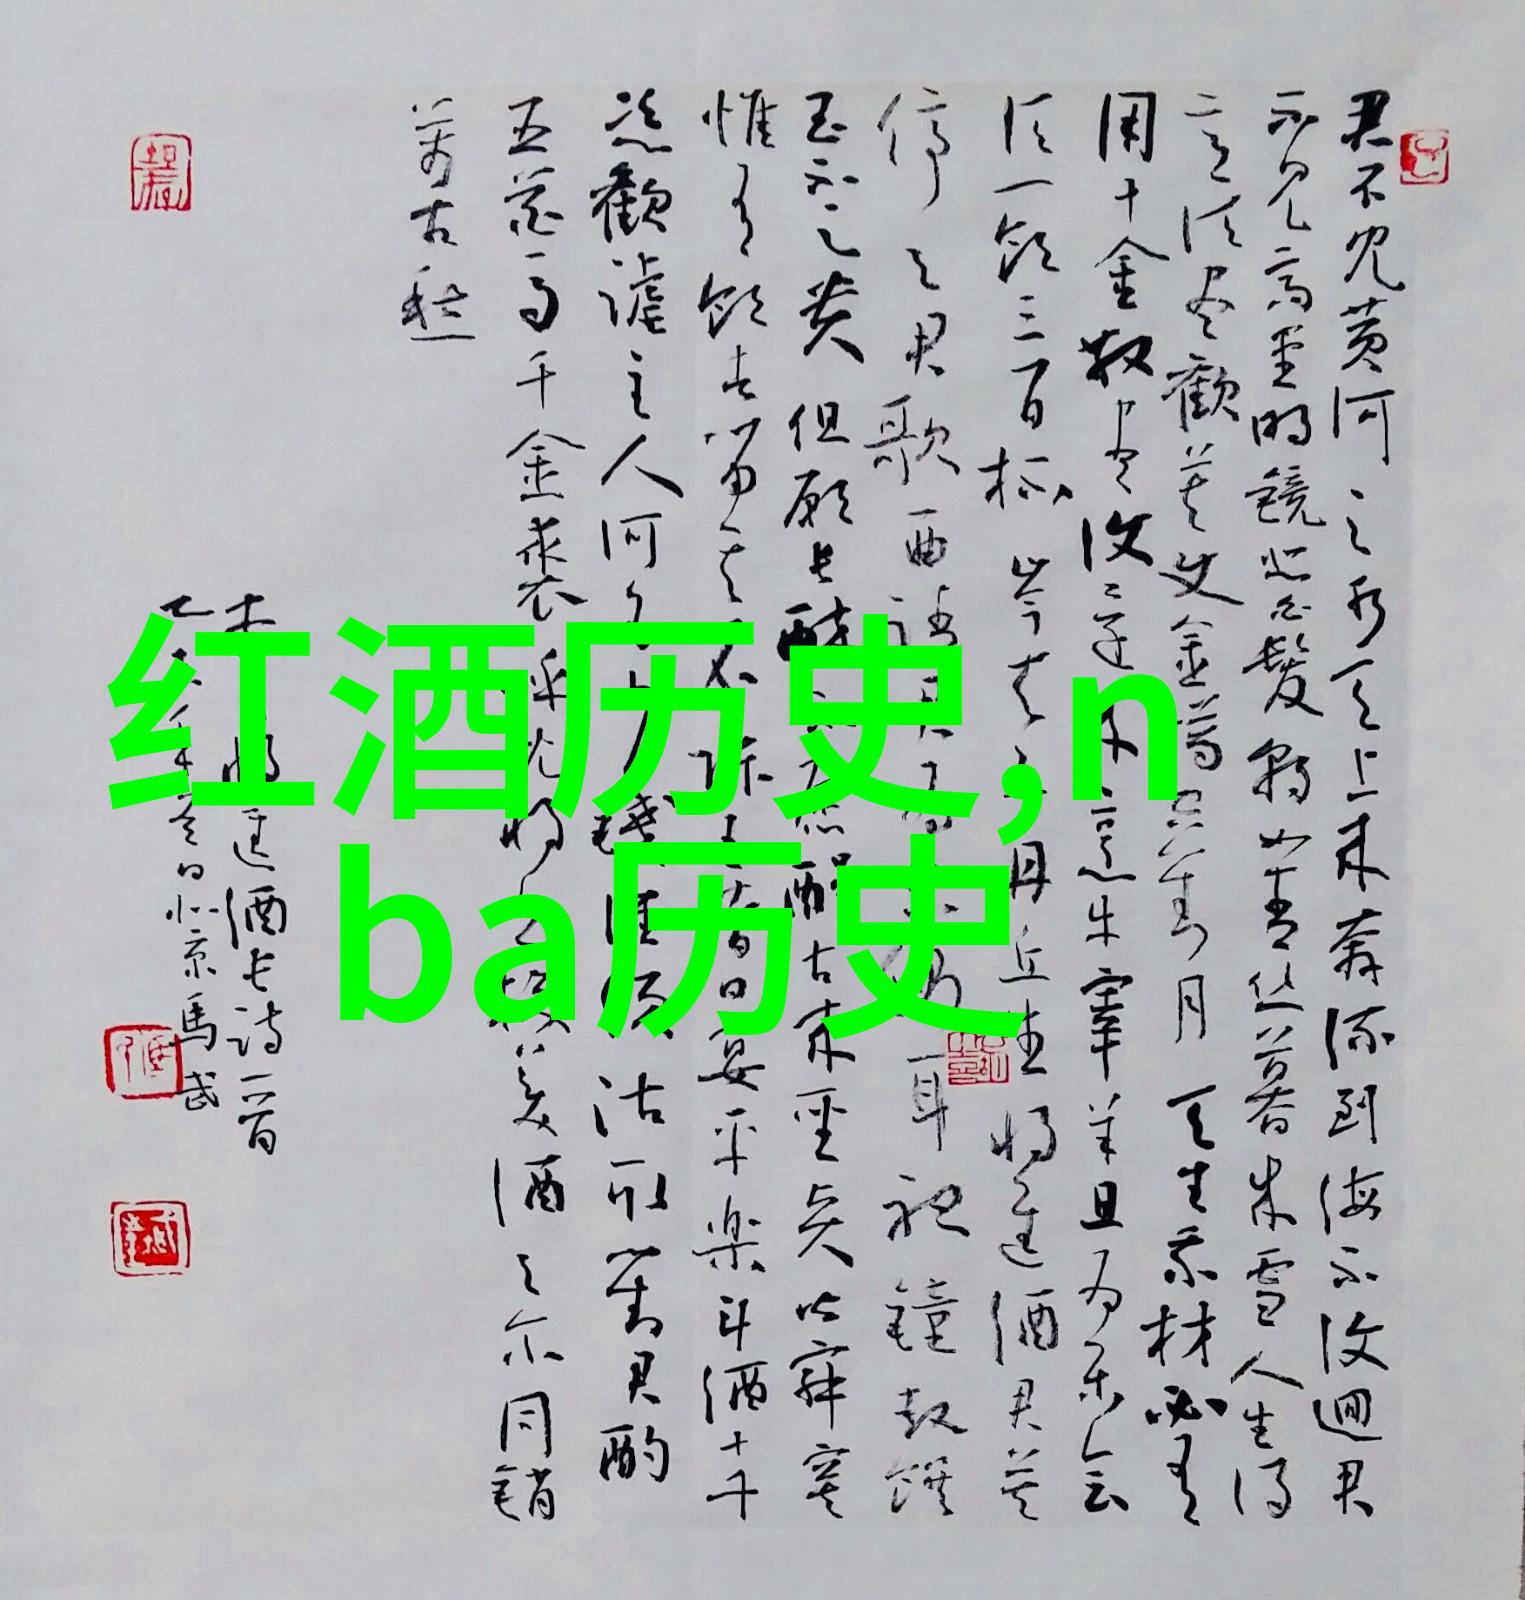 红酒历史,n
ba历史
君不见黄河之水天上来奔流到海不復迴君
不见高堂明镜悲白髮朝如青丝暮成雪人生得
意须尽歡莫使金樽空对月天生我材必有
用千金散尽復还来烹牛宰羊且为乐会
须一饮三百杯岑夫子丹丘生将进酒君莫
停与君歌一曲请君为我倾耳听鐘鼓馔
玉不足贵但愿长醉不愿醒古来圣贤皆寂寞
惟有饮者留其名陈王昔日宴平樂斗酒十千
恣歡谑主人何为言少钱径须沽取对君酌
五花马千金裘呼儿将出换美酒与尔同销
萬古愁
将进酒长诗一首
冬日北京馬武